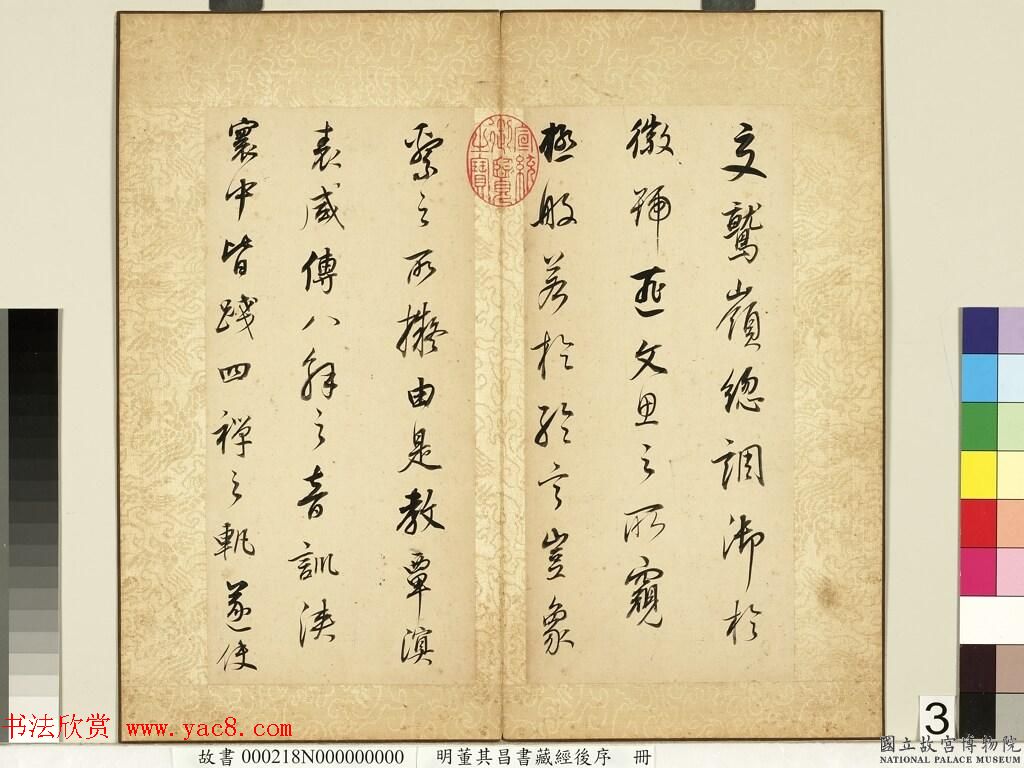 交鷲嶺總調御於
徽號匪文思之所窺
極般若於綸言豈象
繫之所擬由是教覃溟
表咸傳八解之音訓浹
寰中皆踐四禪之軌遂使
宣統御覽之寶
书法欣赏 www.yac8.com
故書 000218N000000000 明董其昌書藏經後序 冊
3
國立故宮博物院
NATIONAL PALACE MUSEUM